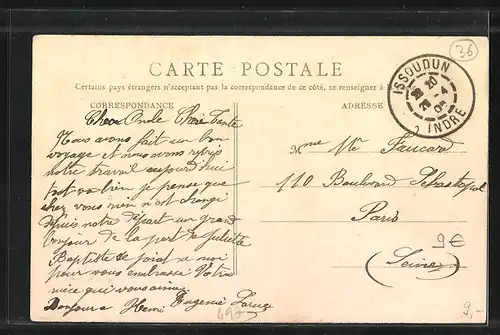 36
CARTE POSTALE
Certains pays étrangers n'acceptant pas la correspondance de ce côté, se renseigner à
CORRESPONDANCE
ADRESSE
ISSOUDUN
20 -4
INDRE
Cher Oncle Chère Tante
Nous avons fait un bon
voyage et nous avons repris
notre travail aujourd'hui
tout va bien je pense que
chez vous rien n'est changé
depuis notre départ un grand
bonjour de la part de Juliette
Baptiste de et moi
pour vous embrasse Votre
nièce qui vous aime
Bonjour à Henri Eugénie
Mme Faucard
110 Boulevard Sébastopol
Paris
(Seine)
9€
497
9,-